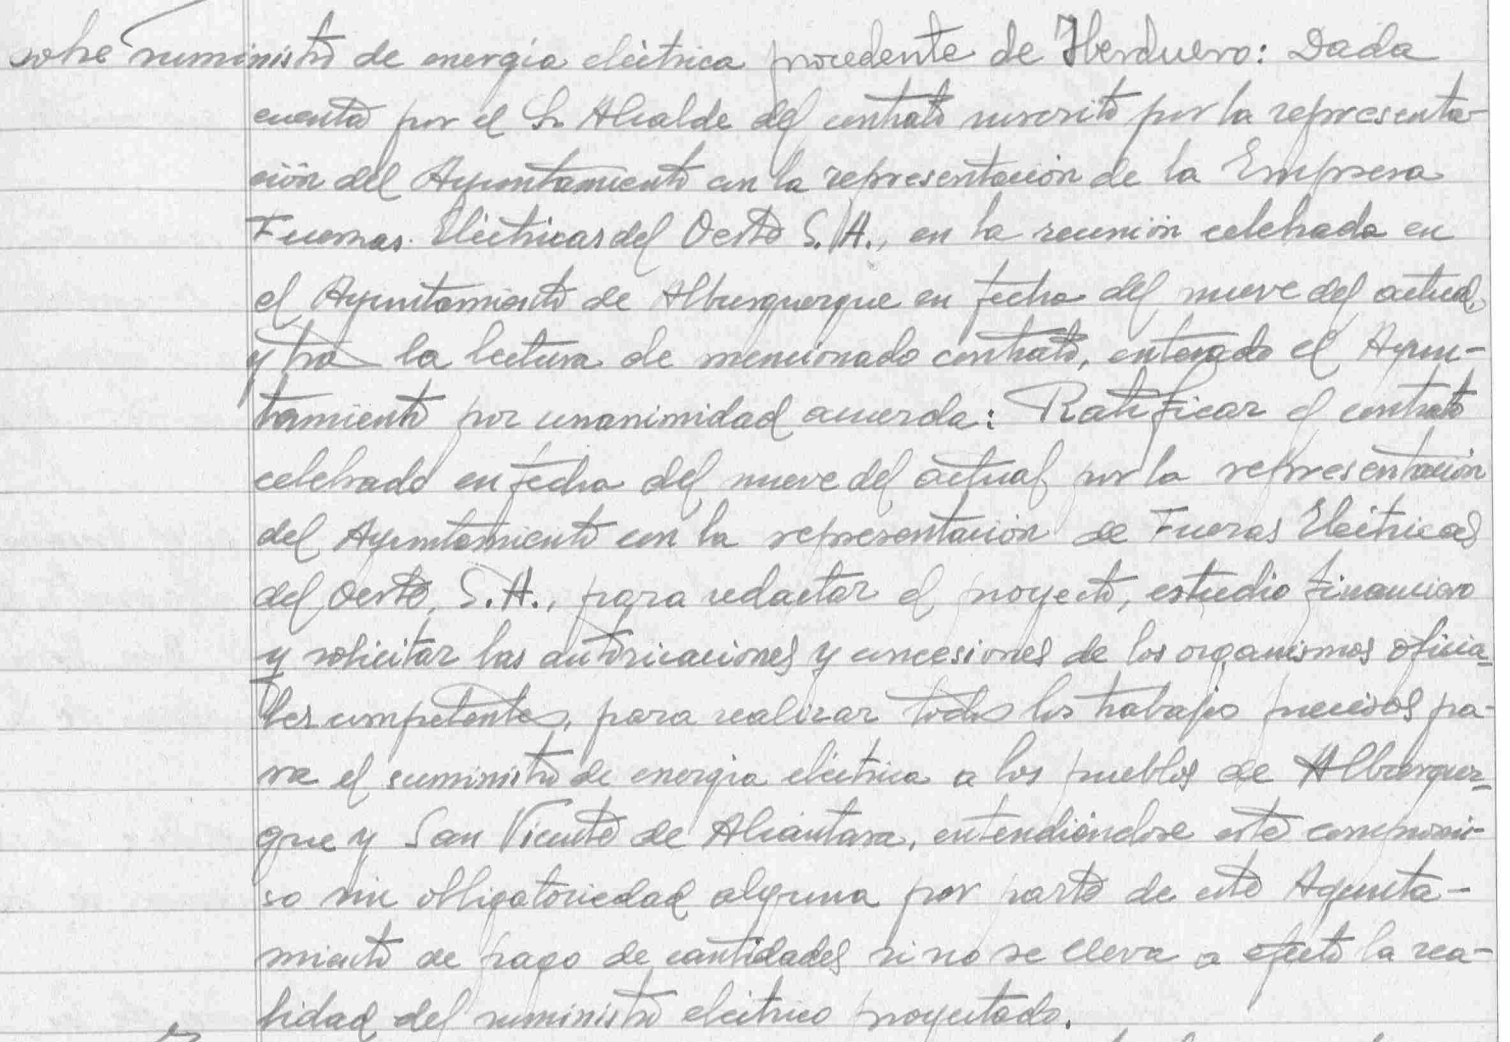 sobre suministro de energía eléctrica procedente de Iberduero: Dada
cuenta por el Sr. Alcalde del contrato suscrito por la representa-
ción del Ayuntamiento con la representación de la Empresa
Fuerzas Eléctricas del Oeste S.A., en la reunión celebrada en
el Ayuntamiento de Alburquerque en fecha del nueve del actual,
y tras la lectura de mencionado contrato, enterado el Ayun-
tamiento por unanimidad acuerda: Ratificar el contrato
celebrado en fecha del nueve del actual por la representación
del Ayuntamiento con la representación de Fuerzas Eléctricas
del Oeste, S.A., para redactar el proyecto, estudio financiero
y solicitar las autorizaciones y concesiones de los organismos oficia-
les competentes, para realizar todos los trabajos precisos pa-
ra el suministro de energía eléctrica a los pueblos de Alburquer-
que y San Vicente de Alcántara, entendiéndose este compromi-
so sin obligatoriedad alguna por parte de este Ayunta-
miento de pago de cantidades si no se lleva a efecto la rea-
lidad del suministro eléctrico proyectado.